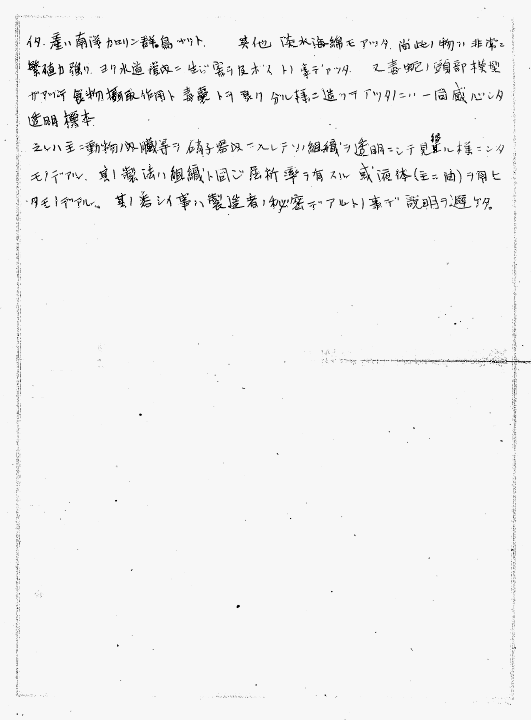 イタ.産ハ南洋カロリン群島ナリト.　其他 淡水海綿モアッタ.尚此ノ物ハ非常ニ
繁殖力強ク.ヨク水道管内ニ生ジ害ヲ及ボストノ事デアッタ.　又毒蛇ノ頭部模型
ガアッテ食物攝取作用ト毒嚢トヲ良ク分ル様ニ造ッテアッタノニハ一同感心シタ
透明標本.
之レハ主ニ動物ノ内臓等ヲ硝子器内ニ入レテソノ組織ヲ透明ニシテ見ル様ニシタ
モノデアル.其ノ製法ハ組織ト同ジ屈折率ヲ有スル或液体(主ニ油)ヲ用ヒ
タモノデアル。其ノ委シイ事ハ製造者ノ秘密デアルトノ事デ説明ヲ避ケタ。